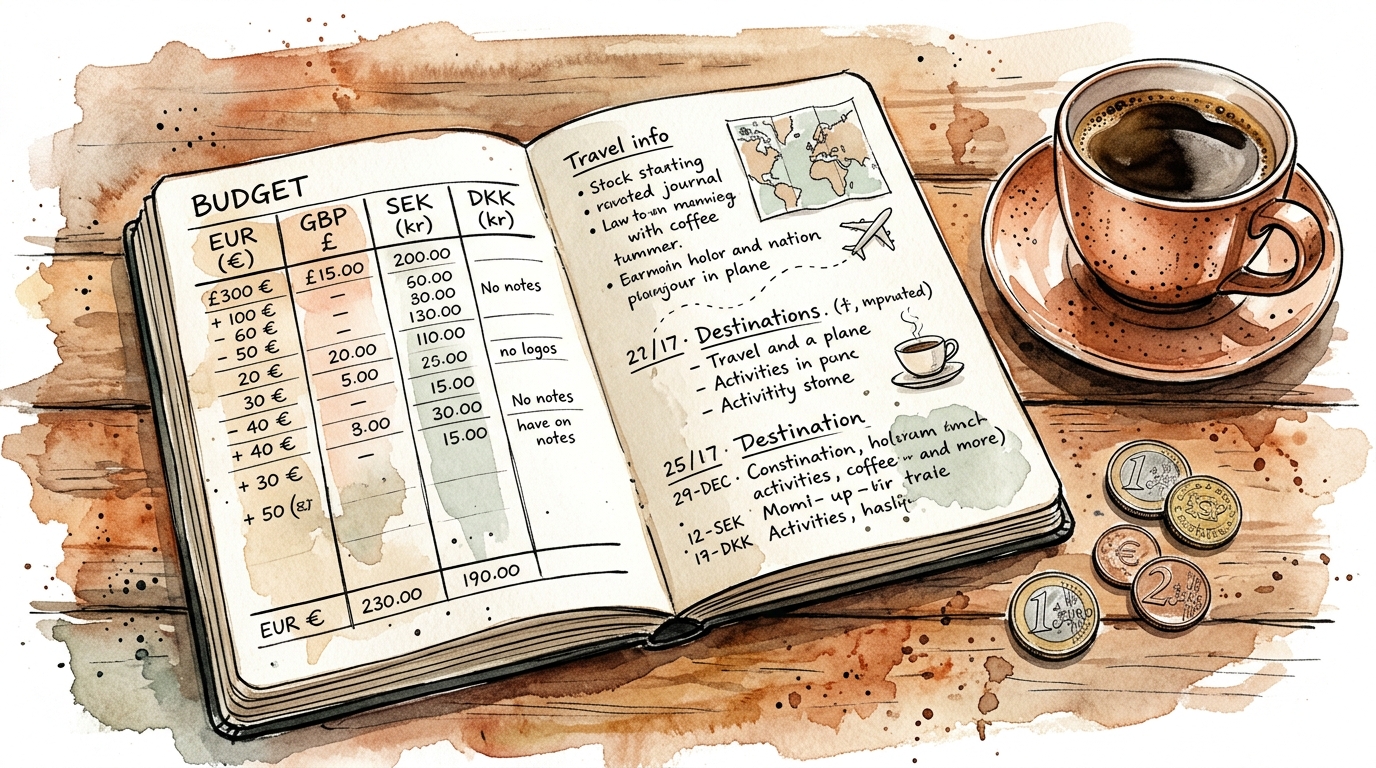 BUDGET
EUR (€)
GBP £
SEK (kr)
DKK (kr)
£300 €
+ 100 €
- 60 €
- 50 €
20 €
30 €
- 40 €
+ 40 €
+ 30 €
+ 50
£15.00
–
–
–
20.00
5.00
–
8.00
–
200.00
60.00
30.00
130.00
110.00
25.00
15.00
30.00
15.00
No notes
no logos
No notes
have on
notes
EUR €
230.00
190.00
Travel info
• Stock starting
• journal
• Law
with coffee
• and nation
in plane
22/17. Destinations.
– Travel and a plane
– Activities in
– Activitity stome
25/17. Destination
29-DEC. Constination,
activities, coffee and more)
Momi – up –
12-SEK Activities,
17-DKK
1
1 EURO
€
2